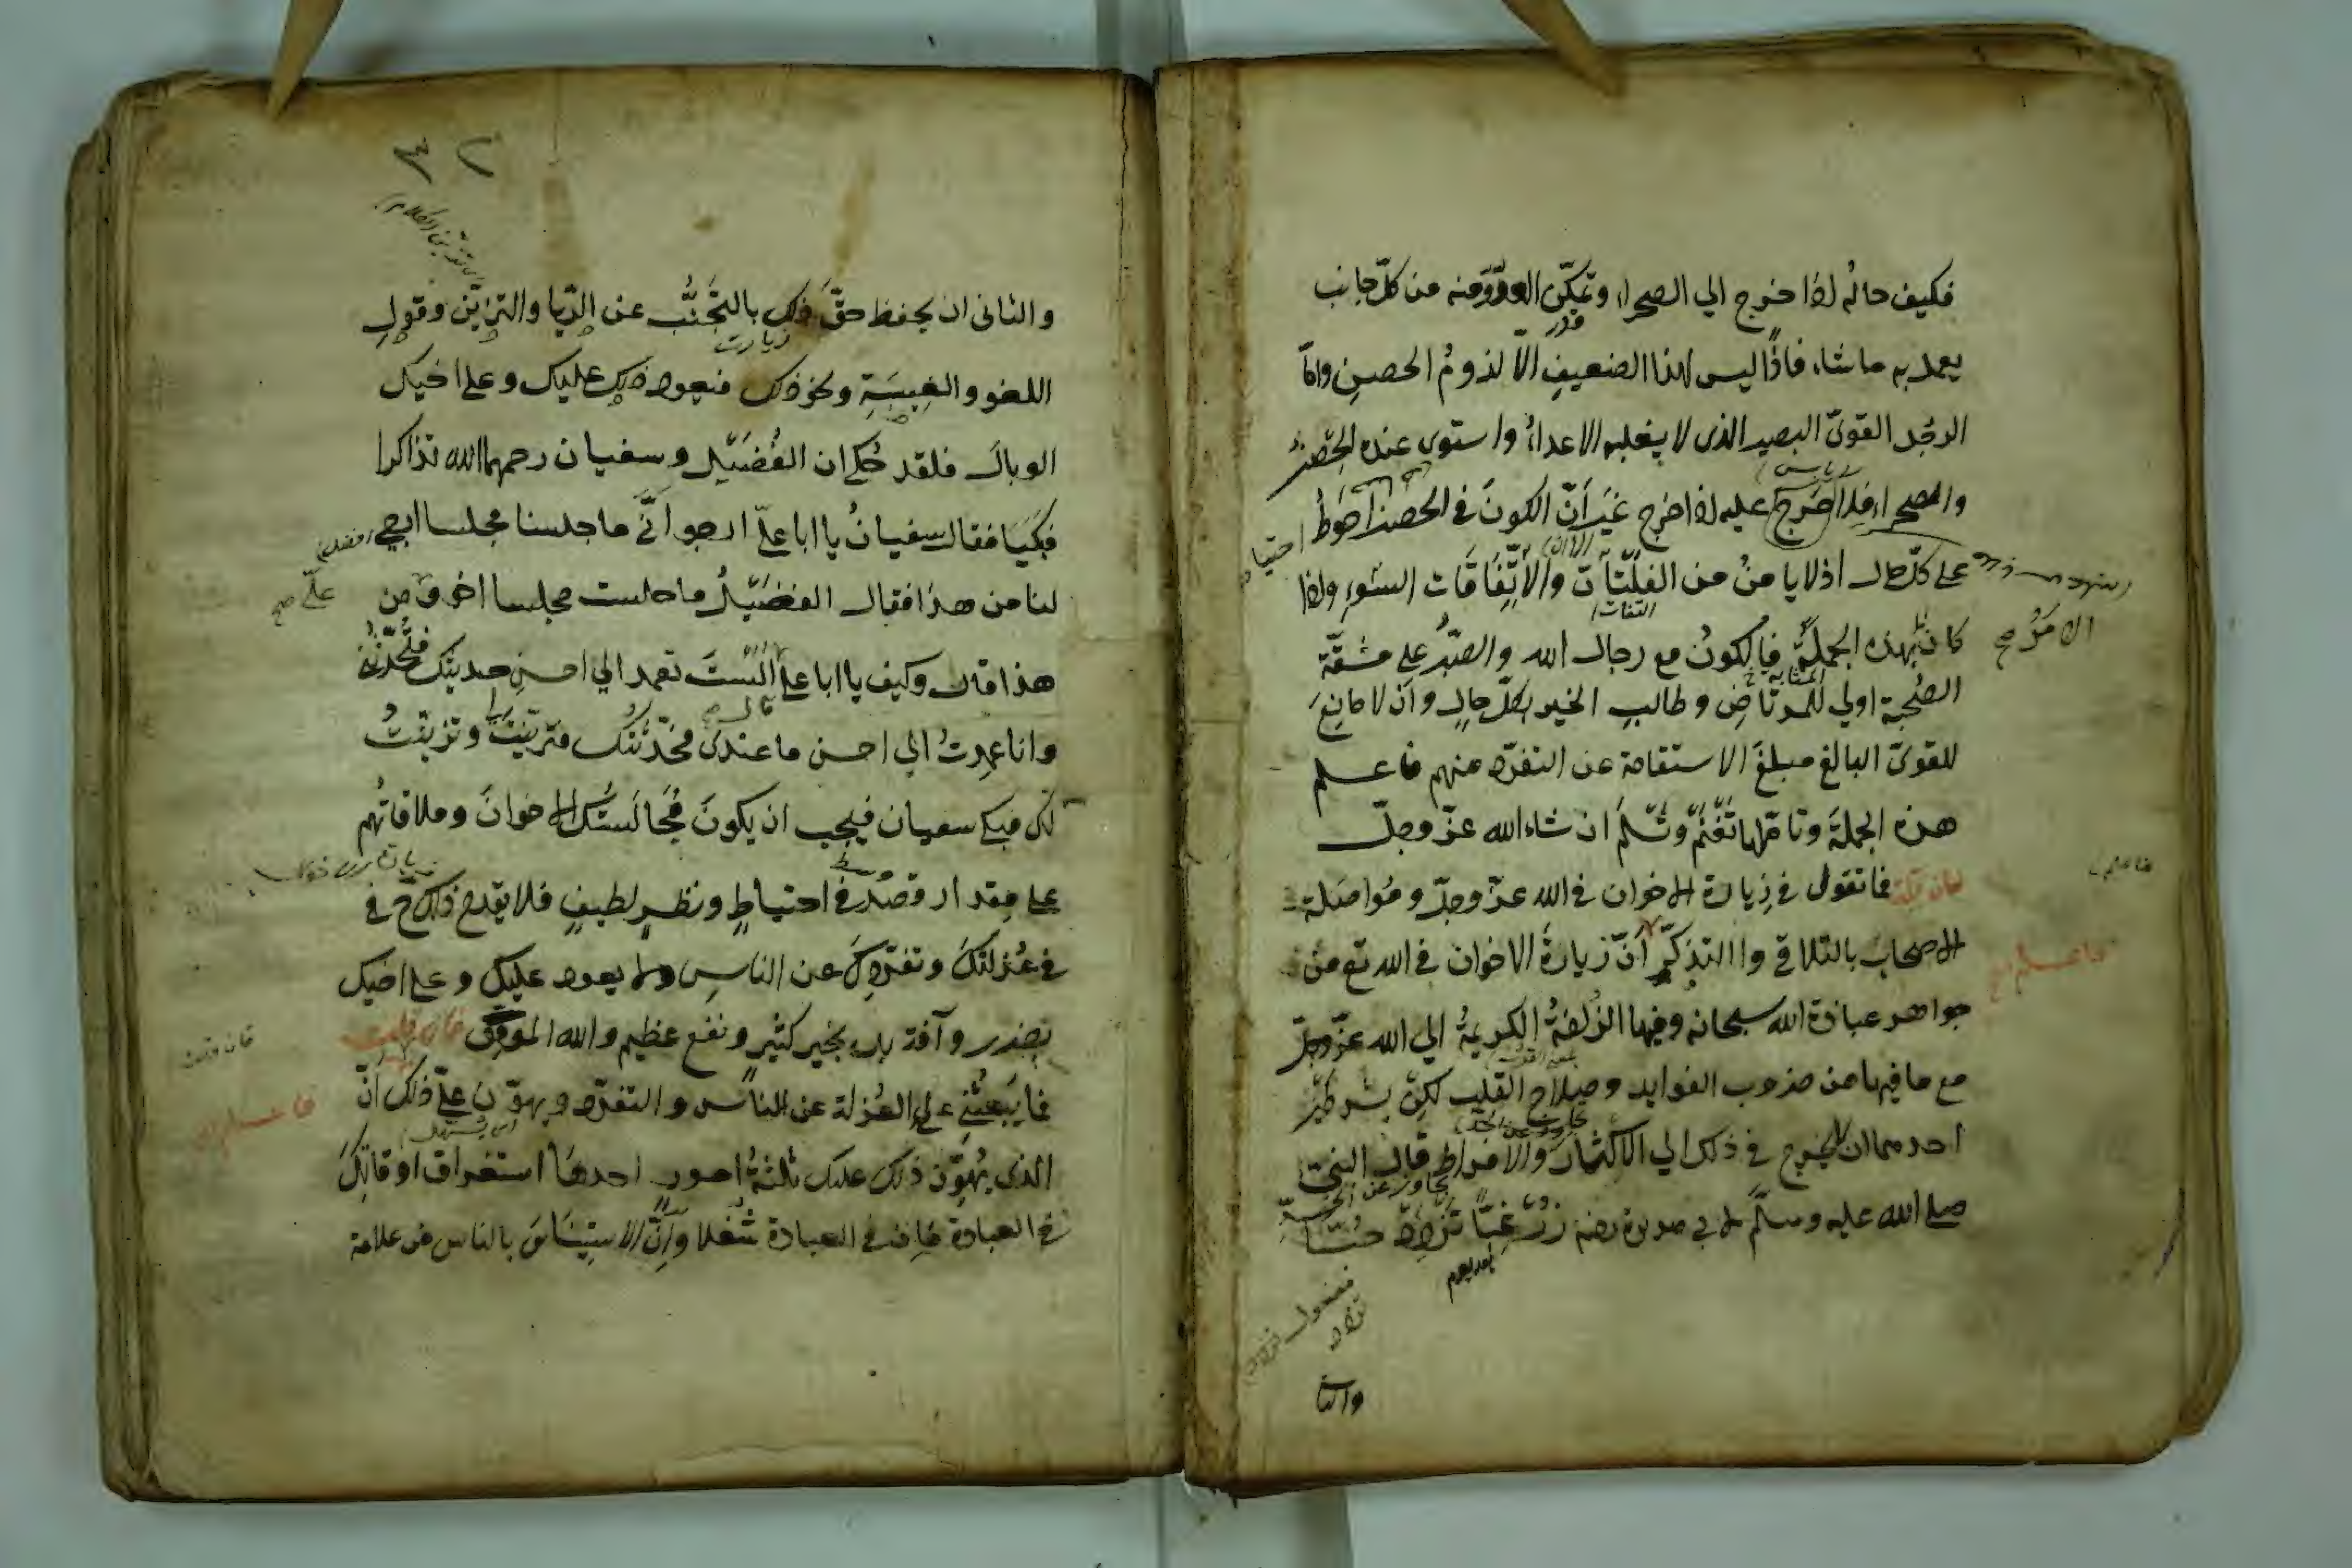 فكيف حاله اذا خرج الي الصحراء وتمكن العدو منه من كل جانب
يعمل به ما شاء فاذًا ليس لهذا الضعيف الّا لزوم الحصن وامّا
الرجل القويّ البصير الذى لا يغلبه الاعداءُ واستوى عنده الحصن
والصحراء فلا حَرَجَ عليه اذا خرج غيرَ انّ الكونَ في الحصن احوطُ
على كلّ حال اذ لا يامنُ من الفلتات والاتّفاقات السّوء واذا
كان بهذه الجملةِ فالكونُ مع رجال الله والصّبرُ على مشقّة
الصّحبة اولي للمرتاض وطالبِ الخير بكلّ حالٍ وان لا مانعَ
للقويّ البالغ مبلغَ الاستقامة عن التفرّد منهم فاعلم
هذه الجملةَ وتامّلها تَغنَم وتَسلَم ان شاء الله عزّ وجلّ
فان قلت فما تقول في زيارة الاخوان في الله عزّ وجلّ ومُواصَلة
الاصحاب بالتلاقي والتذكّر انّ زيارة الاخوان في الله تع من
جواهر عبادة الله سبحانه وفيها الزّلفةُ الكريمةُ الي الله عزّ وجلّ
مع ما فيها من ضروب الفوايد وصلاح القلب لكن بشرطين
احدهما ان لا يخرج في ذلك الي الاكثار والافراط قال النبيّ
صلى الله عليه وسلّم لابي هريرة رضه زُر غِبًّا تزدد حُبًّا
بعد يوم
والثا
٣٢
والثانى ان يحفظ حقّ ذلك بالتجنُّب عن الرّيا والتزيّن وقول
اللغو والغيبة ونحو ذلك فيعود ذلك عليك وعلى اخيك
الوبال فلقد حُكي ان الفُضَيل وسفيان رحمهما الله تذاكرا
فبكيا فقال سفيانُ يا ابا عليّ ارجو انّى ما جلسنا مجلسا ارجى
لنا من هذا فقال الفضَيلُ ما جلست مجلسا اخوف من
هذا قال وكيف يا ابا على الستَ تعمد الي احسنِ حديثك فتُحدّثُنى
وانا عمدتُ الي احسن ما عندى فحدّثتُك فتزيّنتَ وتزيّنتُ
لك فبكى سفيان فيجب ان يكونَ مُجالَستُك الاخوانَ وملاقاتُهم
على مقدار وقصدٍ في احتياطٍ ونظرٍ لطيفٍ فلا يقدح ذلك ح في
في عُزلتك وتفرّدك عن الناسِ ولا يعود عليك وعلى اخيك
بضرر وآفة بل بخير كثيرٍ ونفع عظيم والله الموفّق فان قلت
فما يَبعثُنى على العُزلة عن الناس والتفرّد ويهوّن عليّ ذلك انّ
الذى يُهوّن ذلك عليك ثلثةُ امور احدها استغراق اوقاتِك
في العبادة فان في العبادة شُغلا وانّ الاستيناسَ بالناس من علامة